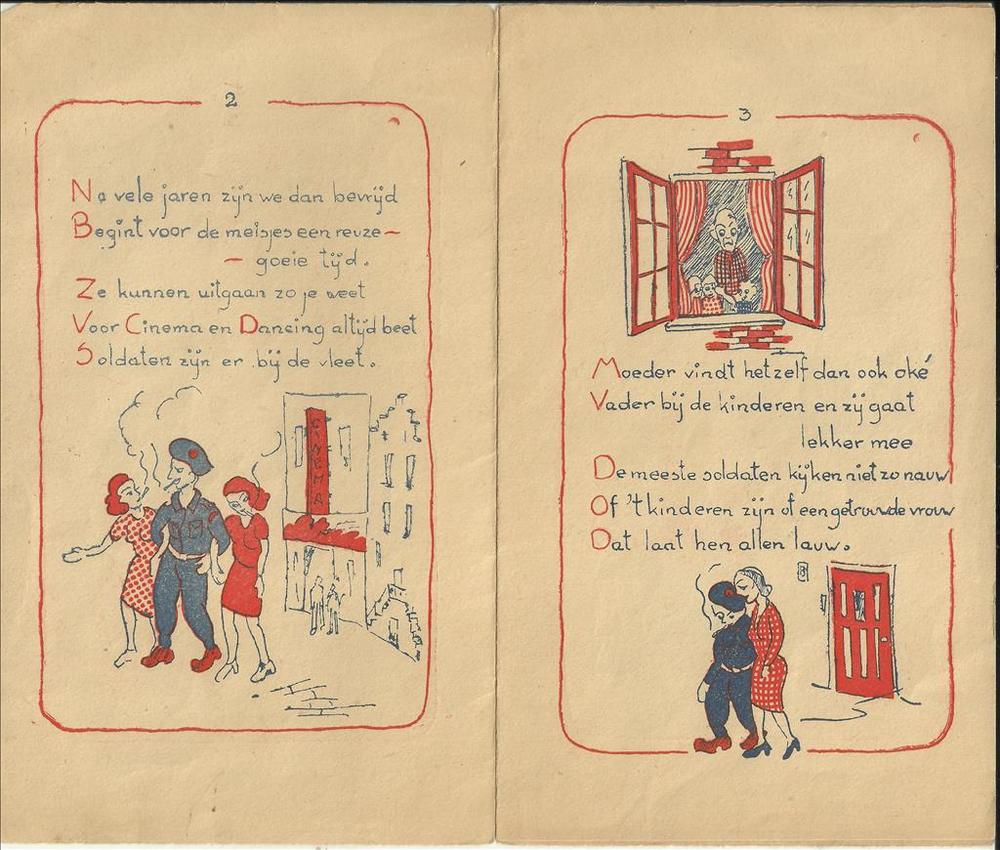 2
Na vele jaren zijn we dan bevrijd
Begint voor de meisjes een reuze-
- goeie tijd.
Ze kunnen uitgaan zo je weet
Voor Cinema en Dancing altijd beet
Soldaten zijn er bij de vleet.
CINEMA
3
Moeder vindt het zelf dan ook oké
Vader bij de kinderen en zij gaat
lekker mee
De meeste soldaten kijken niet zo nauw
Of 't kinderen zijn of een getrouwde vrouw
Dat laat hen allen lauw.
8